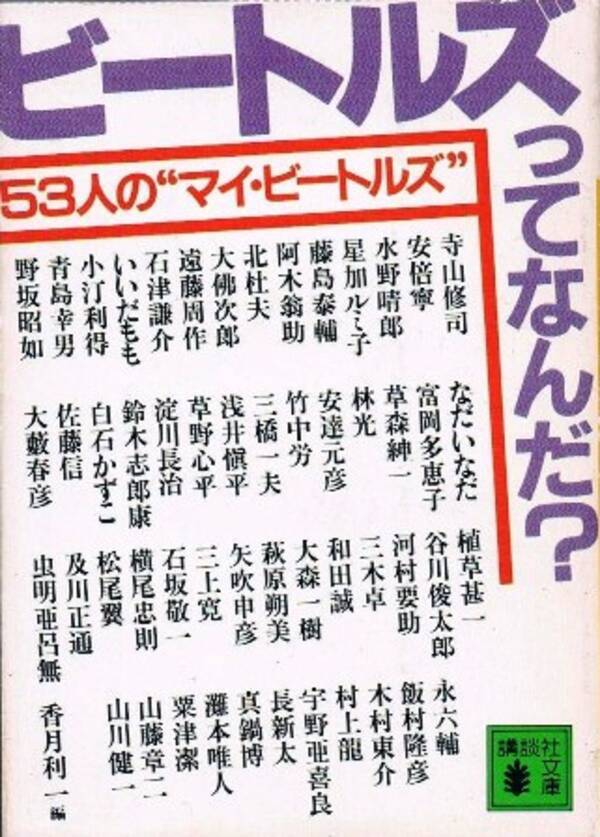 ビートルズってなんだ？
53人の“マイ・ビートルズ”
寺山修司
安倍寧
水野晴郎
星加ルミ子
藤島泰輔
阿木翁助
北杜夫
大佛次郎
遠藤周作
石津謙介
いいだもも
小汀利得
青島幸男
野坂昭如
なだいなだ
富岡多恵子
草森紳一
林光
安達元彦
竹中労
三橋一夫
浅井愼平
草野心平
淀川長治
鈴木志郎康
白石かずこ
佐藤信
大藪春彦
植草甚一
谷川俊太郎
河村要助
三木卓
和田誠
大森一樹
萩原朔美
矢吹申彦
三上寛
石坂敬一
横尾忠則
松尾翼
及川正通
虫明亜呂無
永六輔
飯村隆彦
木村東介
村上龍
宇野亜喜良
長新太
真鍋博
灘本唯人
粟津潔
山藤章二
山川健一
香月利一編
講談社
文庫